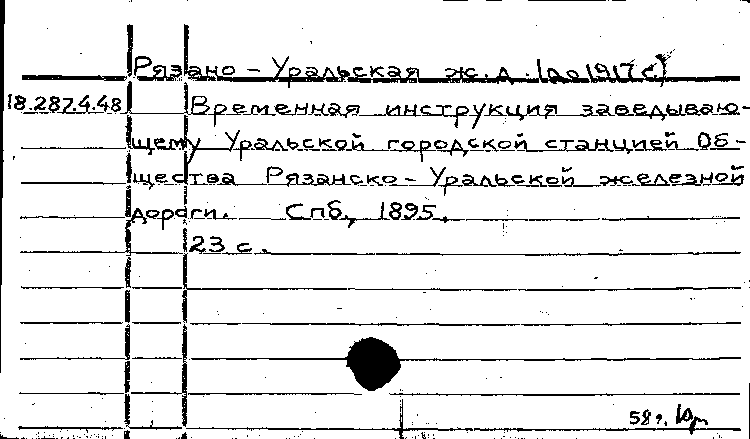 Рязано-Уральская ж.д. (до 1917 г)
18.287.4.48 Временная инструкция заведываю-
щему Уральской городской станцией Об-
щества Рязанско-Уральской железной
дороги. Спб., 1895.
23 с.
58г.